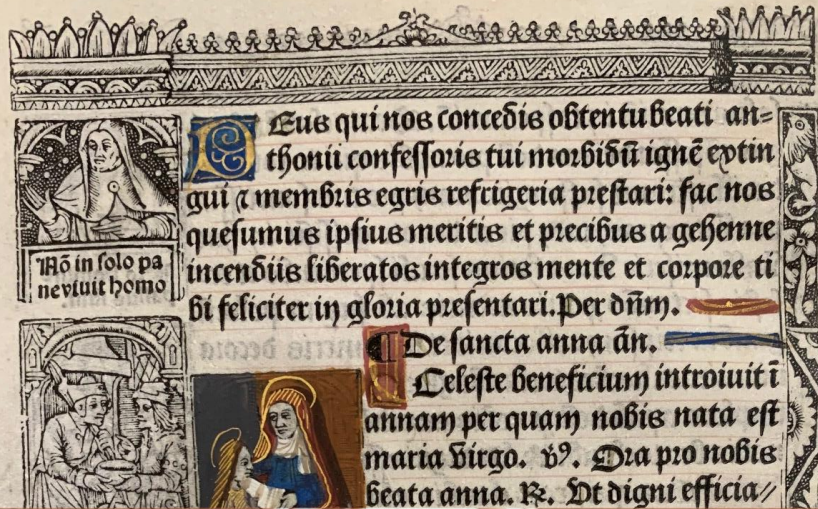 Deus qui nos concedis obtentu beati an=
thonii confessoris tui morbidū ignē extin
gui ⁊ membris egris refrigeria prestari: fac nos
quesumus ipsius meritis et precibus a gehenne
incendiis liberatos integros mente et corpore ti
bi feliciter in gloria presentari. Per dn̄m.
¶ De sancta anna ān.
Celeste beneficium introiuit ī
annam per quam nobis nata est
maria virgo. v̉ꝰ. Ora pro nobis
beata anna. ℞. Ut digni efficia//
Nō in solo pa
ne viuit homo